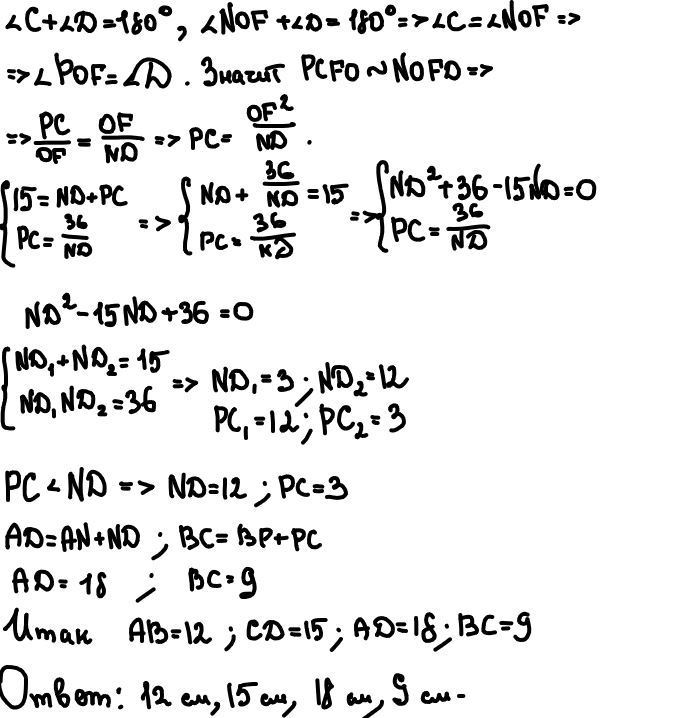 ∠C+∠D=180°, ∠NOF+∠D=180°=>∠C=∠NOF=>
=>∠POF=∠D. Значит PCFO~NOFD=>
=> PC/OF = OF/ND => PC= OF²/ND.
{15=ND+PC; PC=36/ND => {ND+36/ND=15; PC=36/КD => {ND²+36-15ND=0; PC=36/ND
ND²-15ND+36=0
{ND₁+ND₂=15; ND₁ND₂=36 => ND₁=3; ND₂=12
PC₁=12; PC₂=3
PC<ND => ND=12; PC=3
AD=AN+ND; BC=BP+PC
AD=18; BC=9
Итак AB=12; CD=15; AD=18; BC=9
Ответ: 12 см, 15 см, 18 см, 9 см-